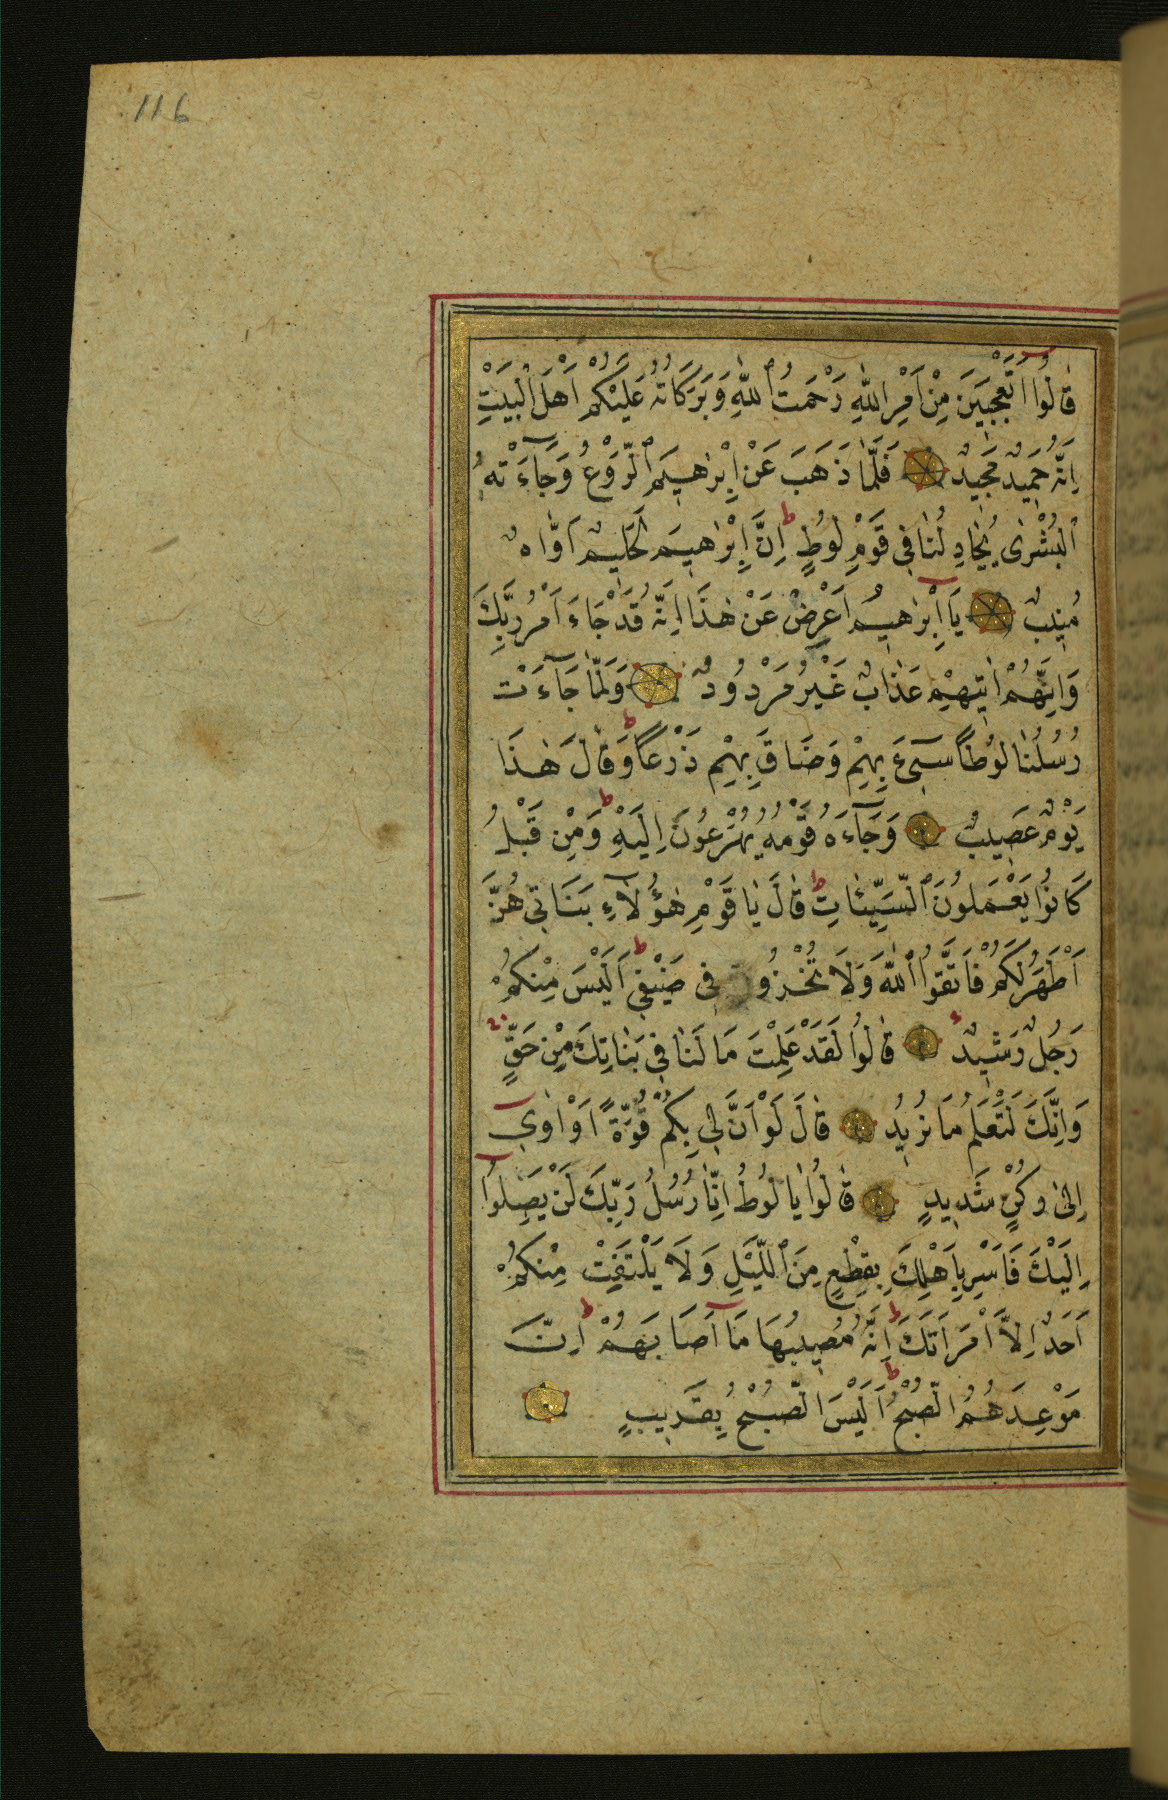 116
قَالُوا اَتَعْجَبِينَ مِنْ اَمْرِ اللّٰهِ رَحْمَتُ اللّٰهِ وَبَرَكَاتُهُ عَلَيْكُمْ اَهْلَ الْبَيْتِ
اِنَّهُ حَمِيدٌ مَجِيدٌ فَلَمَّا ذَهَبَ عَنْ اِبْرٰهِيمَ الرَّوْعُ وَجَآءَتْهُ
الْبُشْرٰى يُجَادِلُنَا فِي قَوْمِ لُوطٍ ط اِنَّ اِبْرٰهِيمَ لَحَلِيمٌ اَوَّاهٌ
مُنِيبٌ يَا اِبْرٰهِيمُ اَعْرِضْ عَنْ هٰذَا اِنَّهُ قَدْ جَاءَ اَمْرُ رَبِّكَ
وَاِنَّهُمْ اٰتِيهِمْ عَذَابٌ غَيْرُ مَرْدُودٍ وَلَمَّا جَآءَتْ
رُسُلُنَا لُوطًا سِىٓءَ بِهِمْ وَضَاقَ بِهِمْ ذَرْعًا ط وَقَالَ هٰذَا
يَوْمٌ عَصِيبٌ وَجَآءَهُ قَوْمُهُ يُهْرَعُونَ اِلَيْهِ ط وَمِنْ قَبْلُ
كَانُوا يَعْمَلُونَ السَّيِّئَاتِ ط قَالَ يَا قَوْمِ هٰؤُلَآءِ بَنَاتِي هُنَّ
اَطْهَرُ لَكُمْ فَاتَّقُوا اللّٰهَ وَلَا تُخْزُونِ فِي ضَيْفِي ط اَلَيْسَ مِنْكُمْ
رَجُلٌ رَشِيدٌ قَالُوا لَقَدْ عَلِمْتَ مَا لَنَا فِي بَنَاتِكَ مِنْ حَقٍّ
وَاِنَّكَ لَتَعْلَمُ مَا نُرِيدُ قَالَ لَوْ اَنَّ لِي بِكُمْ قُوَّةً اَوْ اٰوِي
اِلٰى رُكْنٍ شَدِيدٍ قَالُوا يَا لُوطُ اِنَّا رُسُلُ رَبِّكَ لَنْ يَصِلُوا
اِلَيْكَ فَاَسْرِ بِاَهْلِكَ بِقِطْعٍ مِنَ اللَّيْلِ وَلَا يَلْتَفِتْ مِنْكُمْ
اَحَدٌ اِلَّا امْرَاَتَكَ ط اِنَّهُ مُصِيبُهَا مَا اَصَابَهُمْ ط اِنَّ
مَوْعِدَهُمُ الصُّبْحُ ط اَلَيْسَ الصُّبْحُ بِقَرِيبٍ